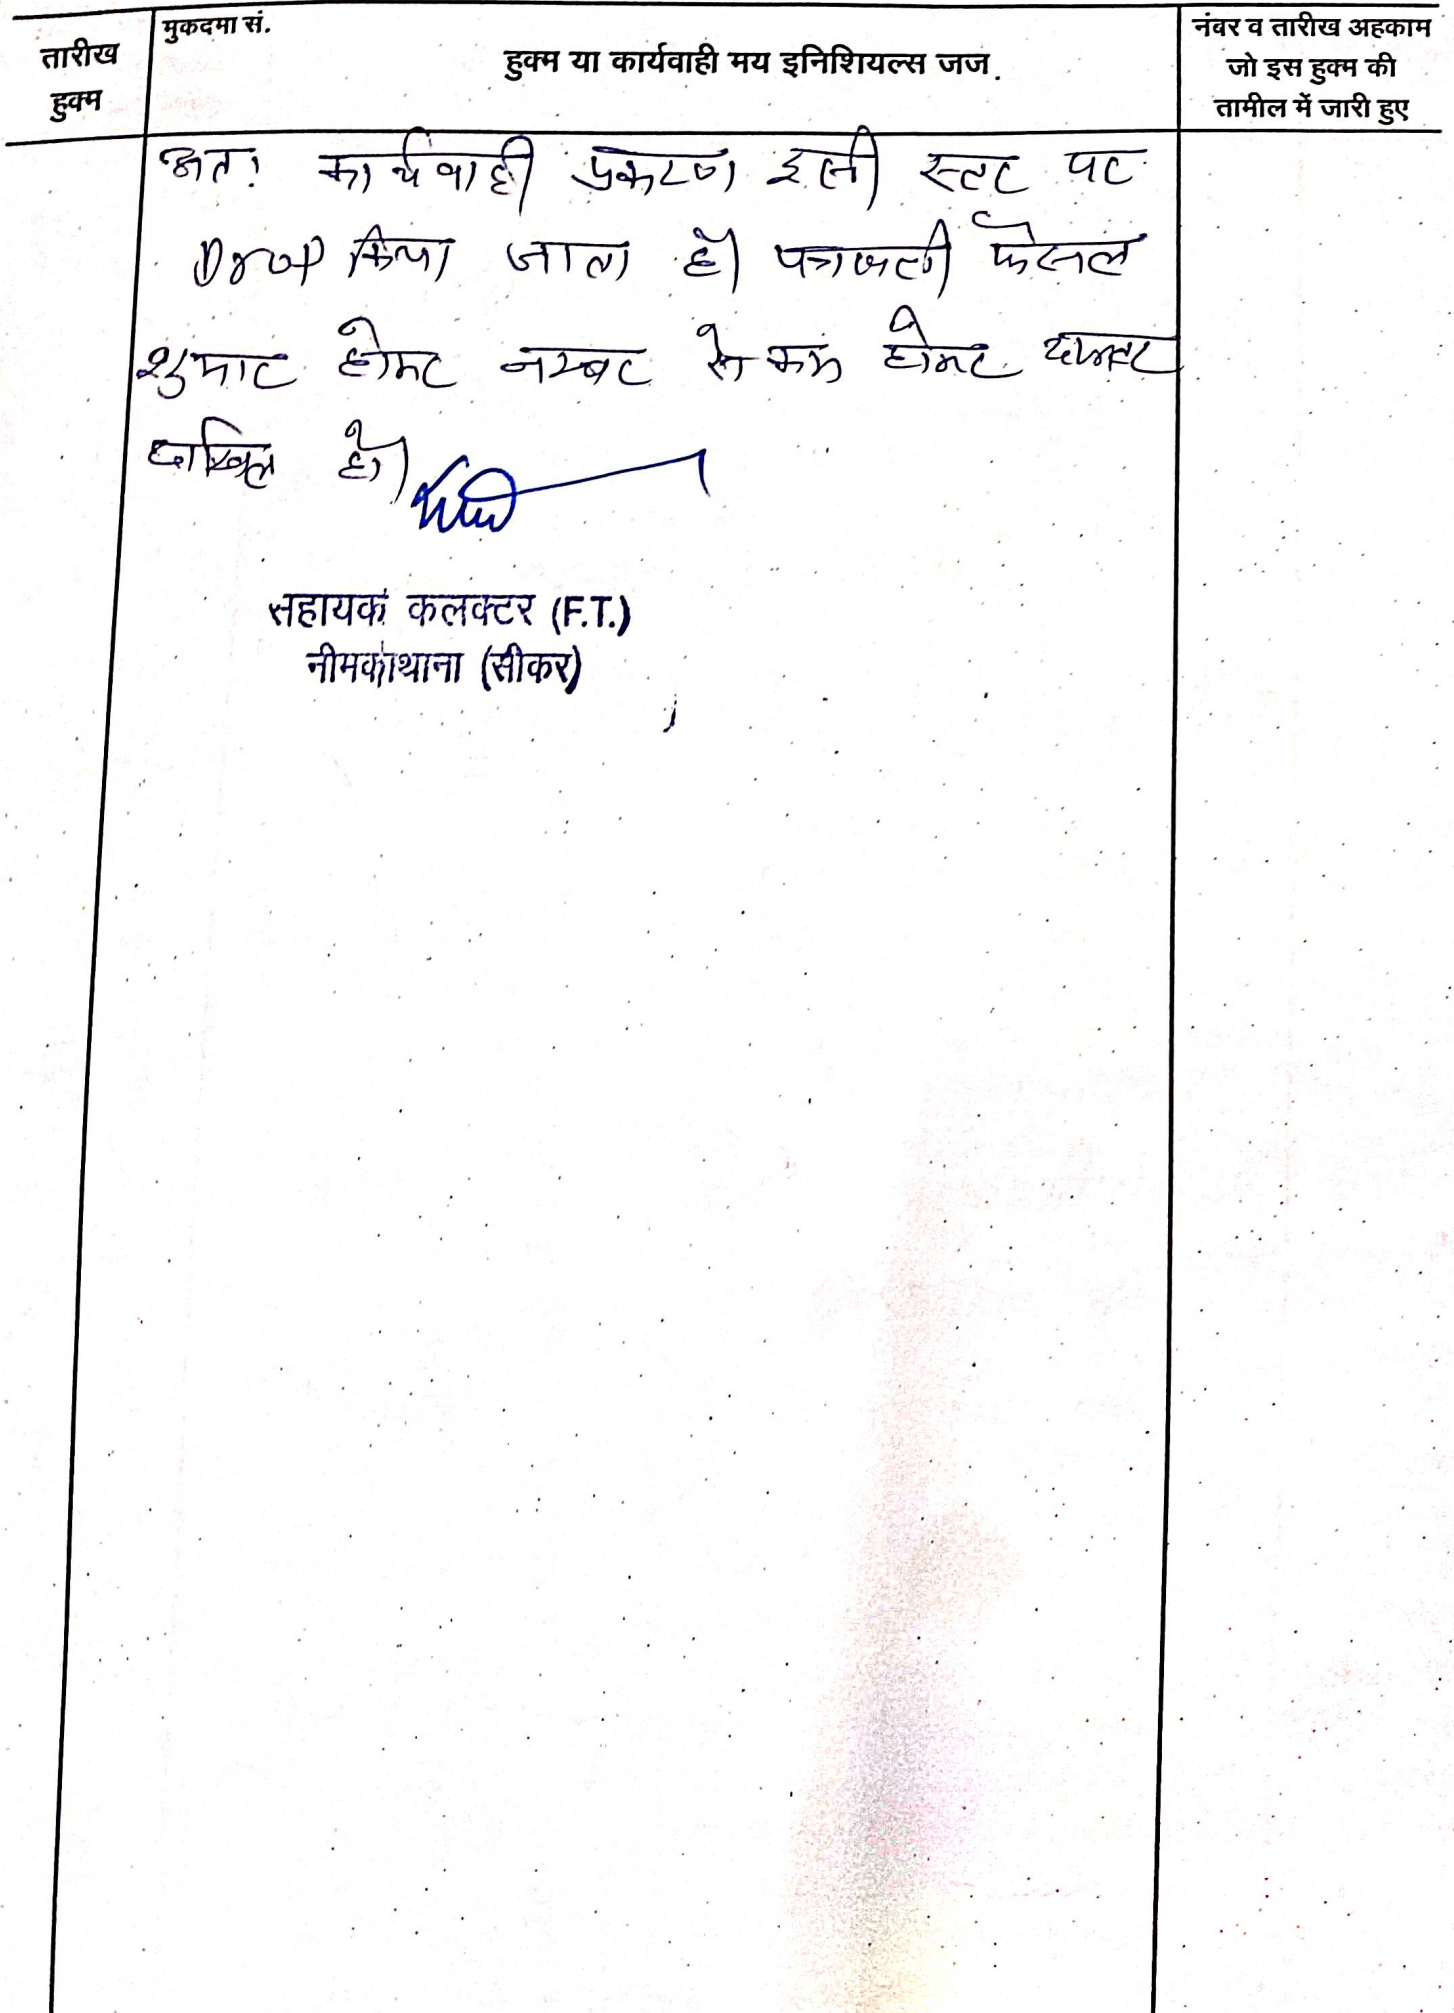 तारीख
हुक्म
मुकदमा सं.
हुक्म या कार्यवाही मय इनिशियल्स जज.
नंबर व तारीख अहकाम
जो इस हुक्म की
तामील में जारी हुए
अत: कार्यवाही प्रकरण इसी स्तर पर
Drop किया जाता है। पत्रावली फैसल
शुमार होकर नम्बर से कम होकर दफ्तर
दाखिल हो।
सहायक कलक्टर (F.T.)
नीमकाथाना (सीकर)